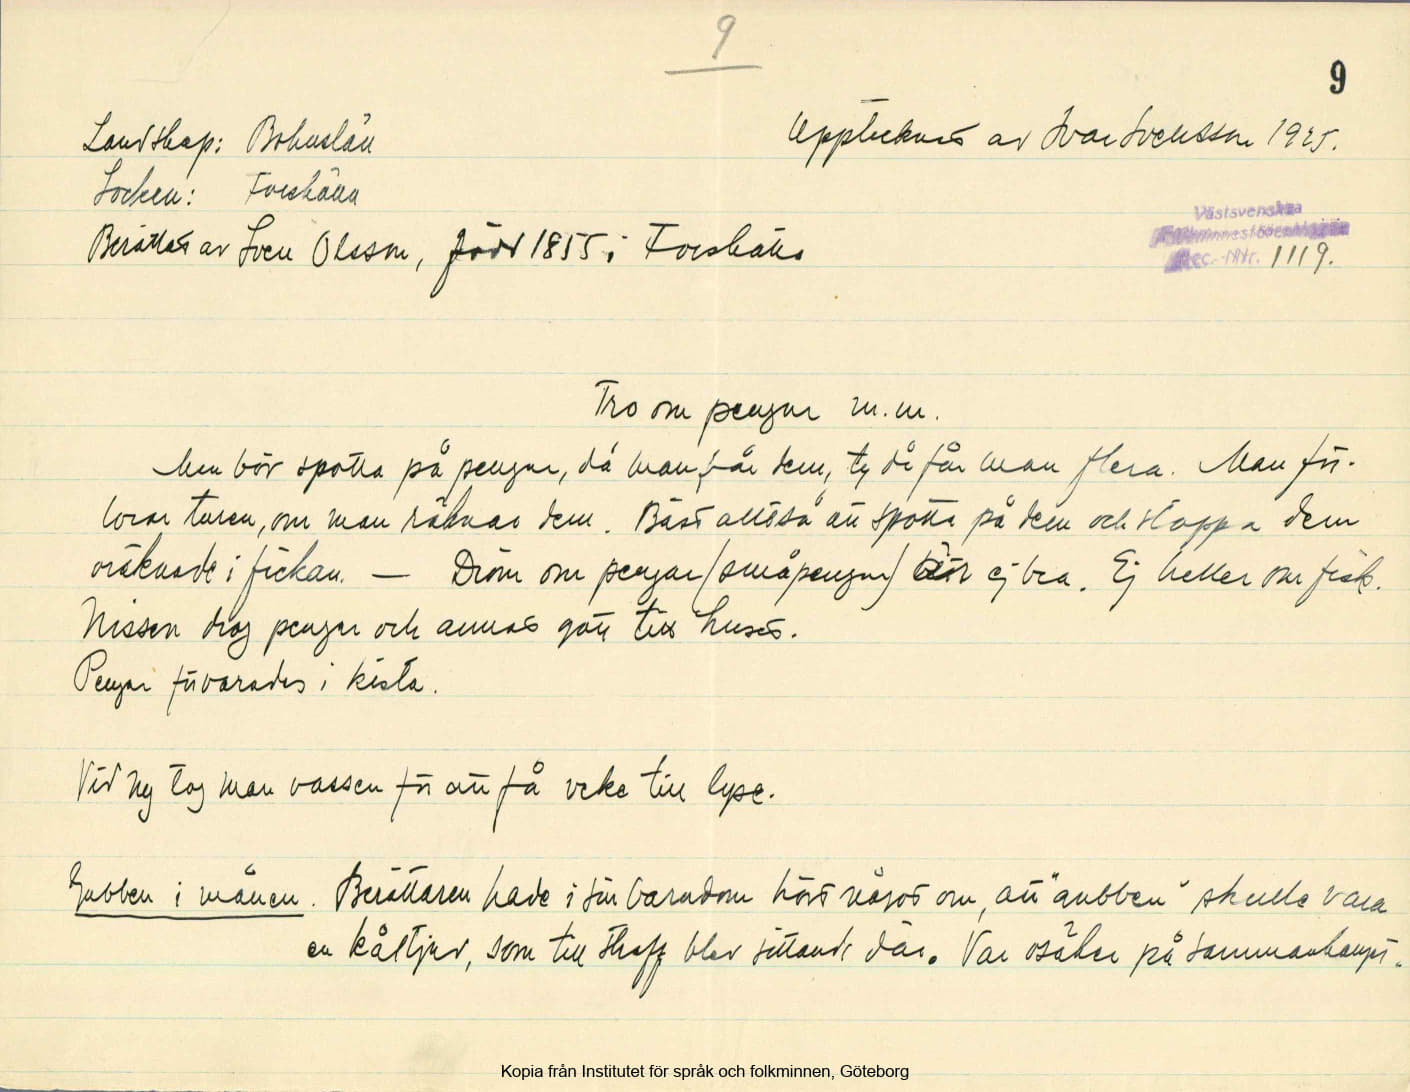 9
9
Landskap: Bohuslän
Upptecknat av Ivar Svensson 1925.
Socken: Foreshälla
Berättat av Sven Olsson, född 1855 i Foreshälla
Västsvenska
Folkminnesföreningen
Acc.-Nr. 1119.
Tro om pengar m.m.
Man bör spotta på pengar, då man får dem, ty då får man flera. Man för-
lorar turen, om man räknar dem. Bäst alltså att spotta på dem och stoppa dem
oräknade i fickan. — Dröm om pengar (småpengar) är ej bra. Ej heller om fisk.
Nissen drog pengar och annat gott till huset.
Pengar förvarades i kista.
Vid ny tog man vassen för att få veke till lyse.
Gubben i månen. Berättaren hade i sin barndom hört något om, att "gubben" skulle vara
en kåltjuv, som till straff blev sittande där. Var osäker på sammanhanget.
Kopia från Institutet för språk och folkminnen, Göteborg